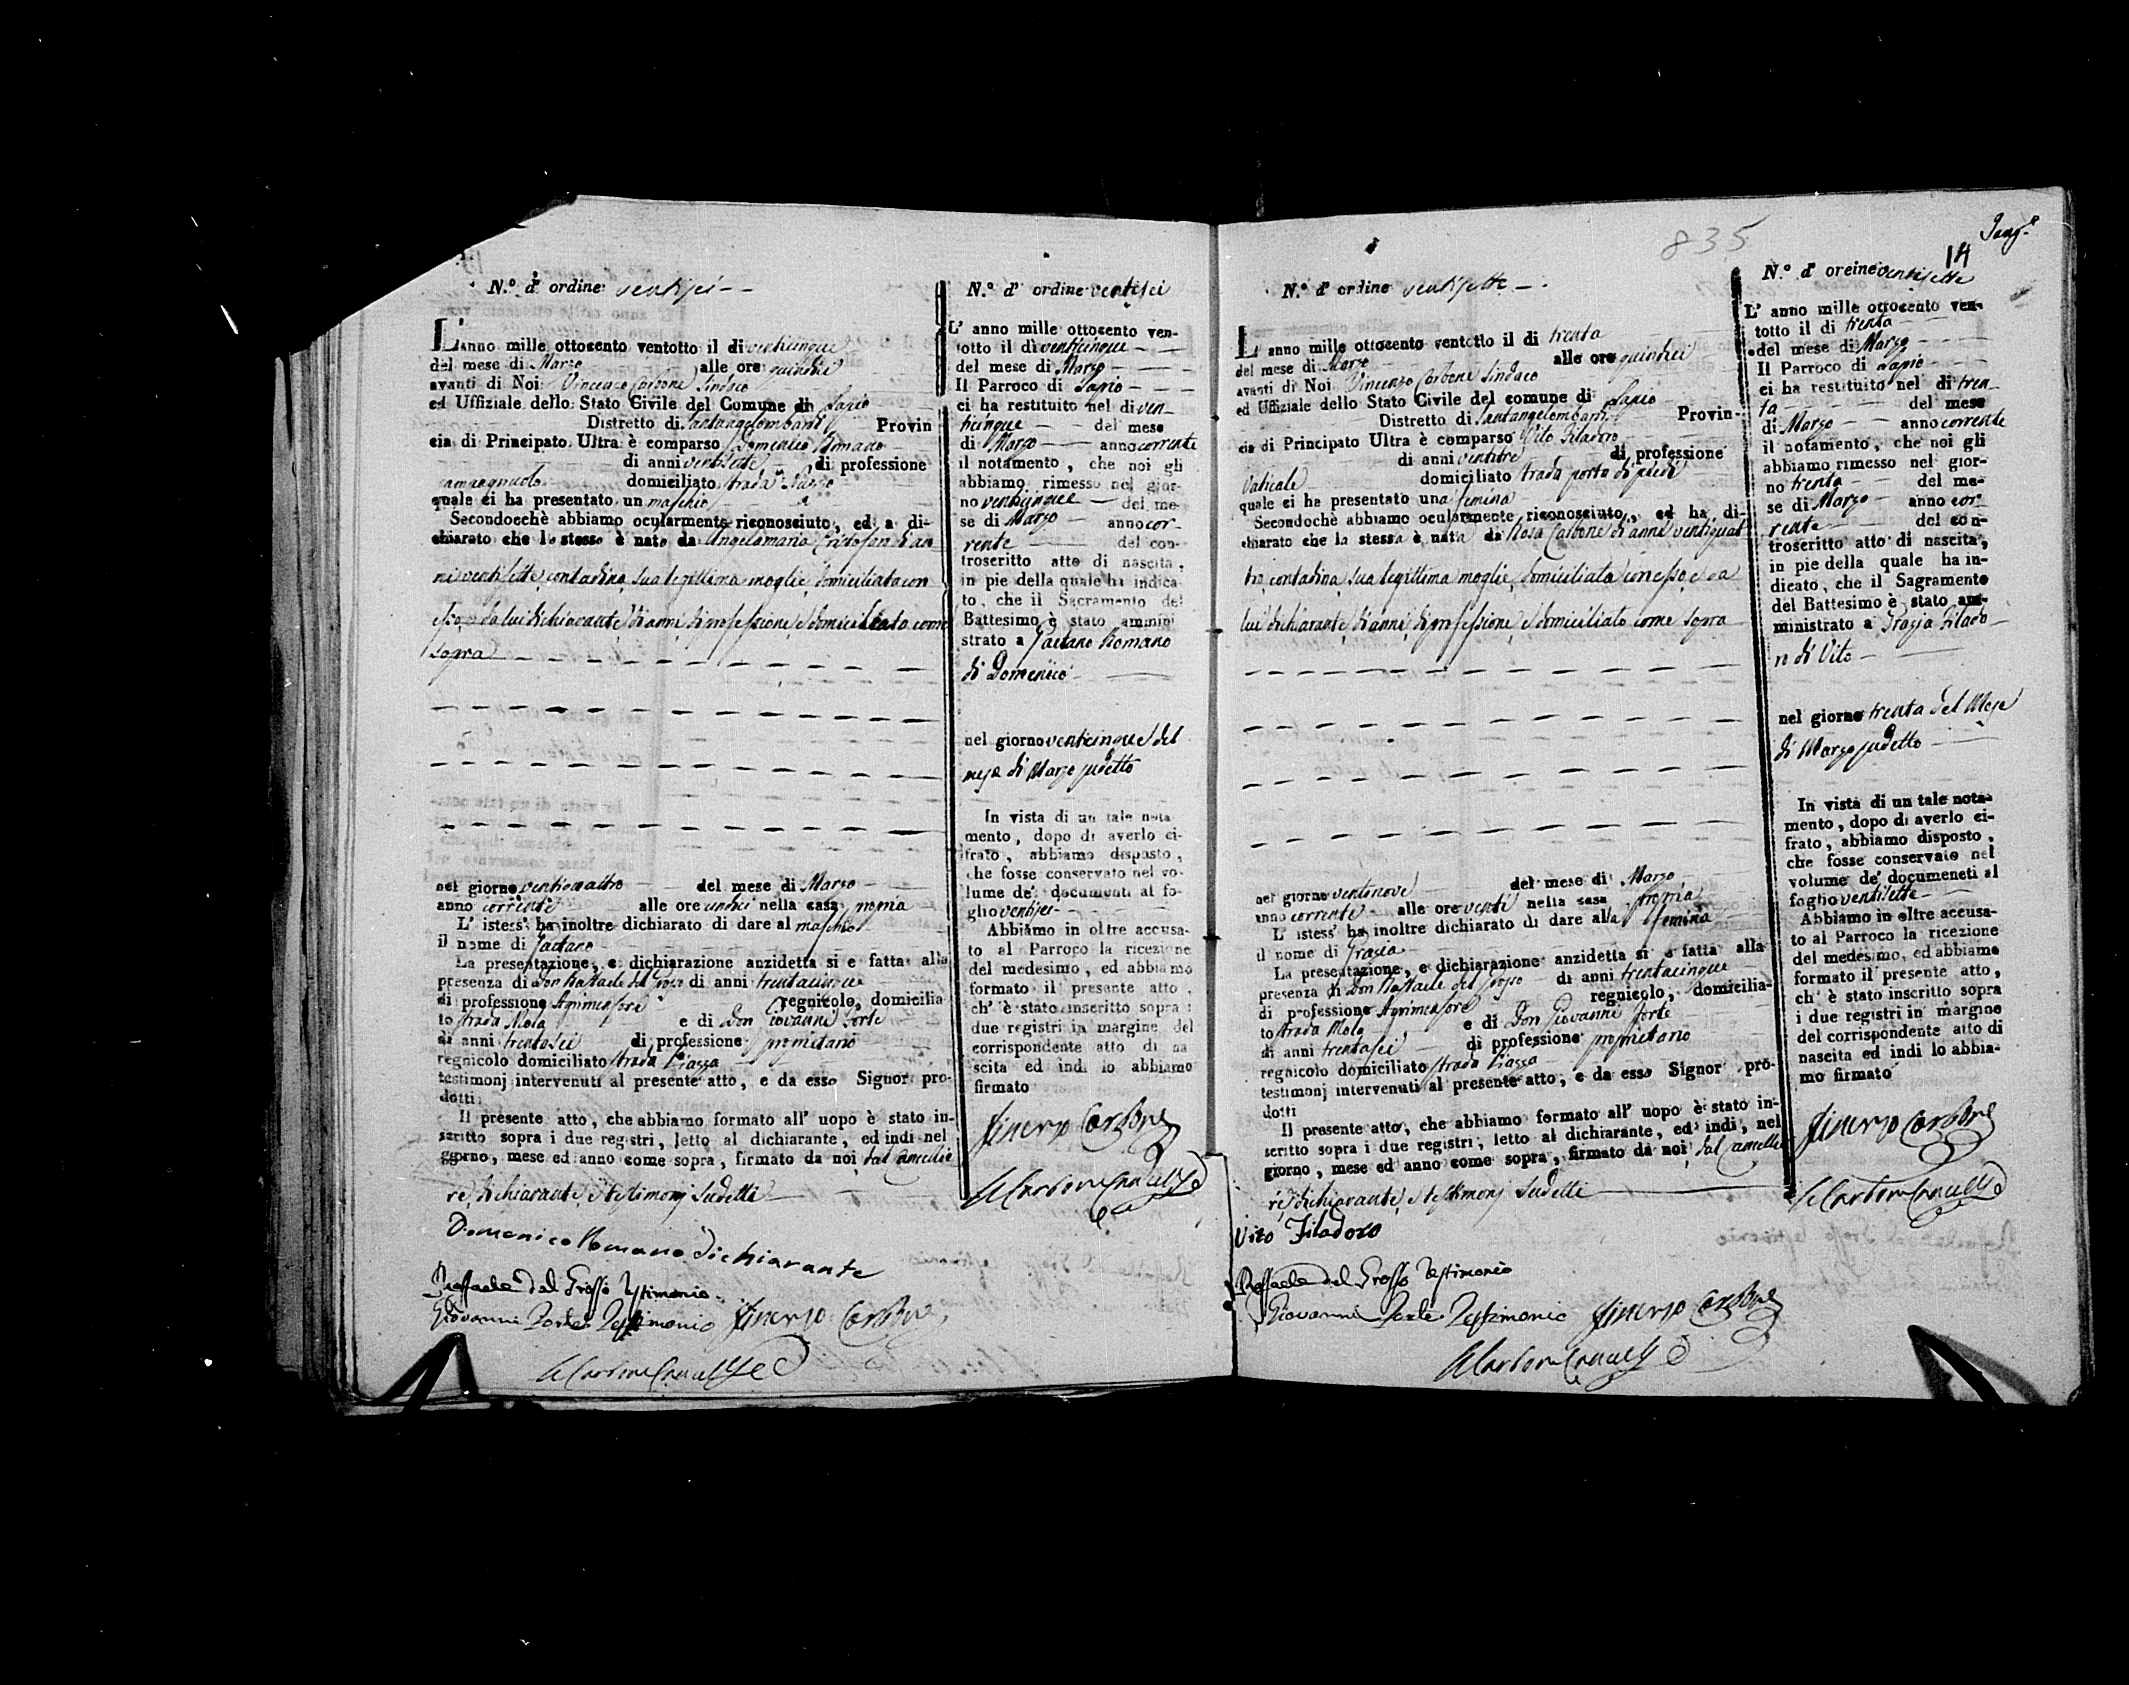 N.º d' ordine ventisei
L'anno mille ottocento ventotto il di venticinque
del mese di Marzo alle ore quindici
avanti di Noi Vincenzo Carbone Sindaco
ed Uffiziale dello Stato Civile del Comune di Lapio
Distretto di Santangelombardi Provin
cia di Principato Ultra è comparso Domenico Romano
di anni ventisette di professione
domiciliato strada
quale ci ha presentato un maschio
Secondocchè abbiamo ocularmente riconosciuto, ed a di-
chiarato che lo stesso è nato da Angelamaria di an
ni ventisette contadina sua legittima moglie domiciliata con
esso e da lui dichiarante di anni di professione, e domiciliato come
sopra
nel giorno ventiquattro del mese di Marzo
anno corrente alle ore undici nella casa propria
L' istess' ha inoltre dichiarato di dare al maschio
il nome di Gaetano
La presentazione, e dichiarazione anzidetta si e fatta alla
presenza di Don Raffaele del Grosso di anni trentacinque
di professione Agrimensore regnicolo, domicilia
to strada Mola e di Don Giovanni Forte
di anni trentasei di professione proprietario
regnicolo domiciliato strada Piazza
testimonj intervenuti al presente atto, e da esso Signor pro-
dotti
Il presente atto, che abbiamo formato all' uopo è stato in-
scritto sopra i due registri, letto al dichiarante, ed indi nel
giorno, mese ed anno come sopra, firmato da noi dal Cancellie
re, dichiarante, e testimonj sudetti
Domenico Romano dichiarante
Raffaele del Grosso Testimonio
Giovanni Forte Testimonio Vincenzo Carbone
Carbone
N.º d' ordine ventisei
L' anno mille ottocento ven-
totto il di venticinque
del mese di Marzo
Il Parroco di Lapio
ci ha restituito nel di ven-
ticinque del mese
di Marzo anno corrente
il notamento, che noi gli
abbiamo rimesso nel gior-
no venticinque del me-
se di Marzo anno cor-
rente del con-
troscritto atto di nascita,
in pie della quale ha indica-
to, che il Sacramento del
Battesimo è stato ammini
strato a Gaetano Romano
di Domenico
nel giorno venticinque del
mese di Marzo sudetto
In vista di un tale nota-
mento, dopo di averlo ci-
frato, abbiamo disposto,
che fosse conservato nel vo-
lume de' documenti al fo-
glio ventisei
Abbiamo in oltre accusa-
to al Parroco la ricezione
del medesimo, ed abbiamo
formato il presente atto,
ch' è stato inscritto sopra i
due registri in margine del
corrispondente atto di na
scita ed indi lo abbiamo
firmato
Vincenzo Carbone
Carbone
835
14
N.º d' ordine ventisette
L' anno mille ottocento ventotto il di trenta
del mese di Marzo alle ore quindici
avanti di Noi Vincenzo Carbone Sindaco
ed Uffiziale dello Stato Civile del comune di Lapio
Distretto di Santangelombardi Provin-
cia di Principato Ultra è comparso Vito Filadoro
di anni ventitre di professione
Vaticale domiciliato strada porta di piedi
quale ci ha presentato una femina
Secondochè abbiamo ocularmente riconosciuto, ed ha di-
chiarato che la stessa è nata da Rosa Carbone di anni ventiquat
tro contadina sua legittima moglie, domiciliata con esso, e da
lui dichiarante, di anni, di professione, e domiciliato come sopra
nel giorno ventinove del mese di Marzo
anno corrente alle ore venti nella casa propria
L' istess' ha inoltre dichiarato di dare alla femina
il nome di Grazia
La presentazione, e dichiarazione anzidetta si è fatta alla
presenza di Don Raffaele del Grosso di anni trentacinque
di professione Agrimensore regnicolo, domicilia-
to strada Mola e di Don Giovanni Forte
di anni trentasei di professione proprietario
regnicolo domiciliato strada Piazza
testimonj intervenuti al presente atto, e da esso Signor pro-
dotti
Il presente atto, che abbiamo formato all' uopo è stato in-
scritto sopra i due registri, letto al dichiarante, ed indi, nel
giorno, mese ed anno come sopra, firmato da noi dal Cancellie
re, dichiarante, e testimonj sudetti
Vito Filadoro
Raffaele del Grosso Testimonio
Giovanni Forte Testimonio Vincenzo Carbone
Carbone
N.º d' oreine ventisette
L' anno mille ottocento ven-
totto il di trenta
del mese di Marzo
Il Parroco di Lapio
ci ha restituito nel di tren
ta del mese
di Marzo anno corrente
il notamento, che noi gli
abbiamo rimesso nel gior-
no trenta del me-
se di Marzo anno cor-
rente del con-
troscritto atto di nascita,
in pie della quale ha in-
dicato, che il Sagramento
del Battesimo è stato am-
ministrato a Grazia Filado-
ro di Vito
nel giorno trenta del Mese
di Marzo sudetto
In vista di un tale nota-
mento, dopo di averlo ci-
frato, abbiamo disposto,
che fosse conservato nel
volume de' documeneti al
foglio ventisette
Abbiamo in oltre accusa-
to al Parroco la ricezione
del medesimo, ed abbiamo
formato il presente atto,
ch' è stato inscritto sopra
i due registri in margine
del corrispondente atto di
nascita ed indi lo abbia-
mo firmato
Vincenzo Carbone
Carbone